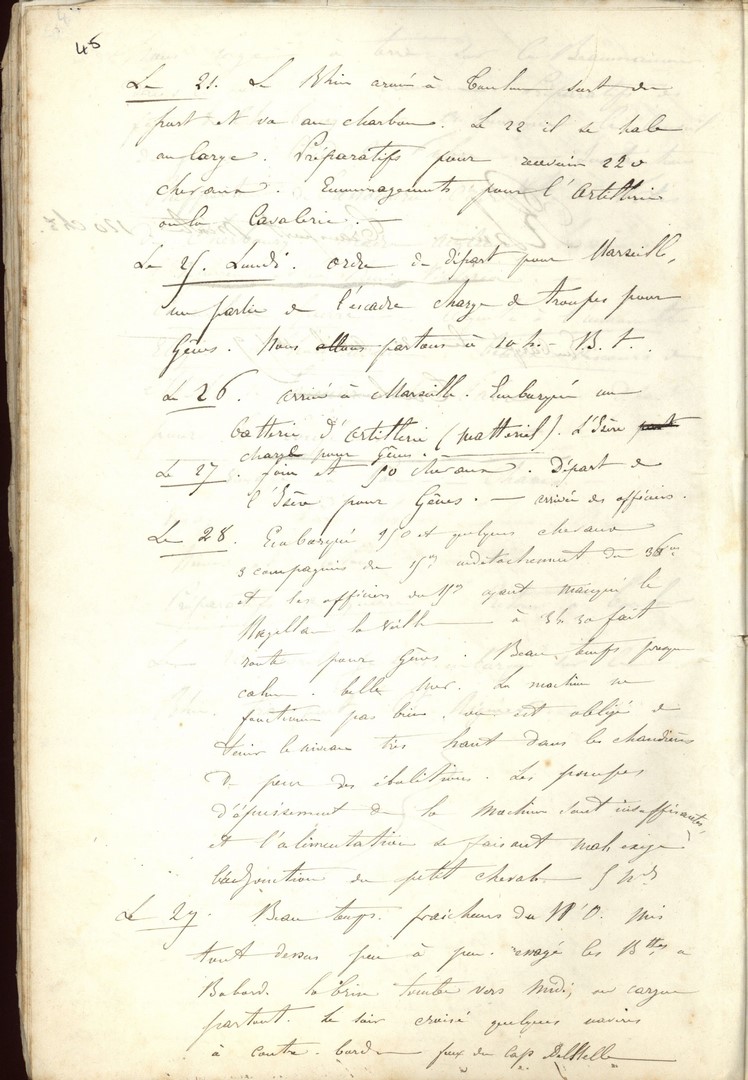 46
Le 21. Le Rhin arrivé à Toulon sort du
port et va au charbon. Le 22 il se hale
au large. Préparatifs pour recevoir 220
chevaux. Emménagements pour l'Artillerie
ou la Cavalerie. —
Le 25. Lundi. ordre de départ pour Marseille,
une partie de l'escadre charge de troupes pour
Gênes. Nous allons partons à 10 h. — B. t.
Le 26. arrivé à Marseille. Embarqué une
batterie d'artillerie (matteriel). L'Isère part
charge pour Gênes.
Le 27. foin et 50 chevaux. Départ de
l'Isère pour Gênes. — arrivée des officiers.
Le 28. Embarqué 150 et quelques chevaux
3 compagnies du 15me un détachement du 36me
et les officiers du 15me ayant manqué le
Magellan la veille — à 3h 30 fait
route pour Gênes. Beau temps presque
calme. belle mer. La machine ne
fonctionne pas bien. on est obligé de
tenir le niveau très haut dans les chaudières
De peur des ébullitions. Les pompes
d'épuisement de la machine sont insuffisantes,
et l'alimentation se faisant mal, exige
l'adjonction du petit cheval. 5 nds
Le 29. Beau temps. fraicheurs du N.O. Mis
tout dessus peu à peu. les Bttes à
Babord. la brise tombe vers midi, on cargue
partout. Le soir croisé quelques navires
à contre-bord — feux du Cap